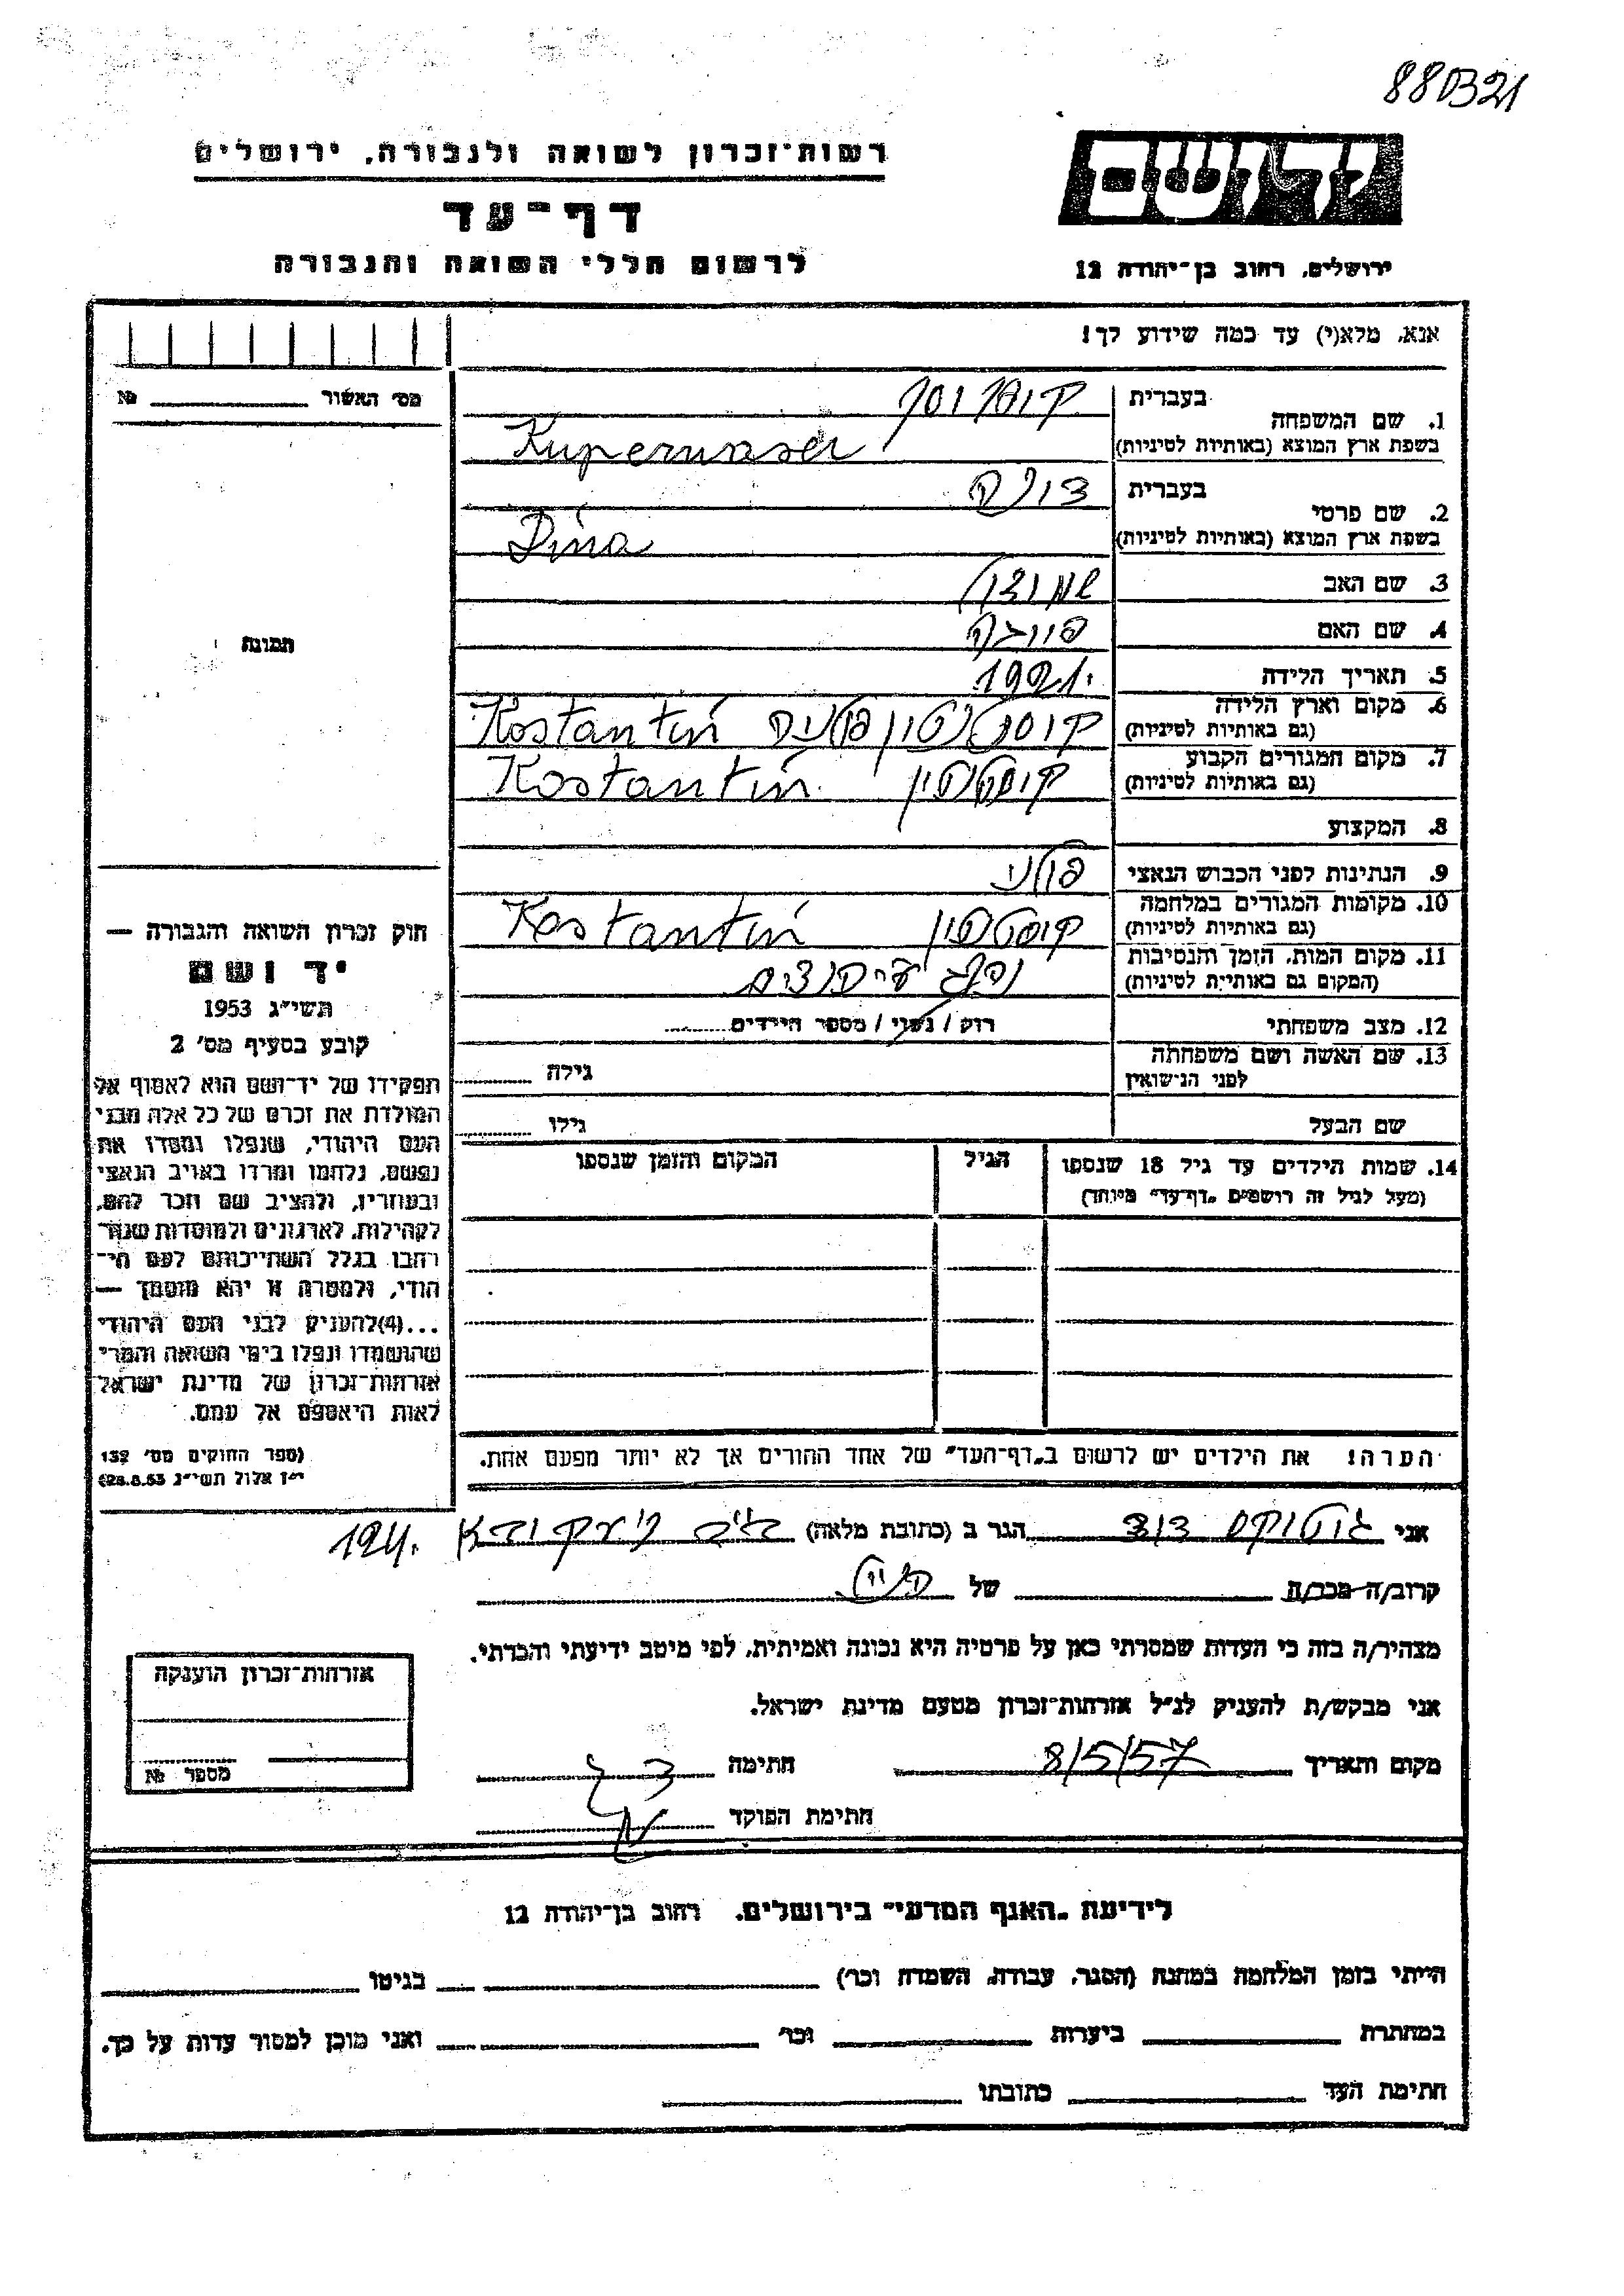 880321
רשות-זכרון לשואה ולגבורה, ירושלים
יד ושם
דף-עד
לרשום חללי השואה והגבורה
ירושלים, רחוב בן-יהודה 12
אנא, מלא(י) עד כמה שידוע לך!
מס' האשור № 
1. שם המשפחה בעברית קופרוסר
בשפת ארץ המוצא (באותיות לטיניות) Kuperwaser
2. שם פרטי בעברית דינה
בשפת ארץ המוצא (באותיות לטיניות) Dina
3. שם האב
4. שם האם
5. תאריך הלידה 1921.
6. מקום וארץ הלידה (גם באותיות לטיניות) Kostantin
7. מקום המגורים הקבוע (גם באותיות לטיניות) קוסטנטין Kostantin
8. המקצוע
9. הנתינות לפני הכבוש הנאצי פולני
10. מקומות המגורים במלחמה (גם באותיות לטיניות) קוסטנטין Kostantin
11. מקום המות, הזמן והנסיבות (המקום גם באותיות לטיניות)
12. מצב משפחתי רוק / נשוי / מספר הילדים
13. שם האשה ושם משפחתה לפני הנישואין גילה
שם הבעל גילו
14. שמות הילדים עד גיל 18 שנספו
(מעל לגיל זה רושמים "דף-עד" מיוחד)
הגיל
המקום והזמן שנספו
תמונה
חוק זכרון השואה והגבורה —
יד ושם
תשי"ג 1953
קובע בסעיף מס' 2
תפקידו של יד-ושם הוא לאסוף אל
המולדת את זכרם של כל אלה מבני
העם היהודי, שנפלו ומסרו את
נפשם, נלחמו ומרדו באויב הנאצי
ובעוזריו, ולהציב שם וזכר להם,
לקהילות, לארגונים ולמוסדות שנח-
רבו בגלל השתייכותם לעם הי-
הודי, ולמטרה זו יהא מוסמך —
...(4) להעניק לבני העם היהודי
שהושמדו ונפלו בימי השואה והמרי
אזרחות-זכרון של מדינת ישראל
לאות היאספם אל עמם.
(ספר החוקים מס' 132
י"ז אלול תשי"ג 28.8.53)
הערה! את הילדים יש לרשום ב"דף-העד" של אחד ההורים אך לא יותר מפעם אחת.
אני דוד הגר ב (כתובת מלאה)
קרוב/ה מכר/ה של
מצהיר/ה בזה כי העדות שמסרתי כאן על פרטיה היא נכונה ואמיתית, לפי מיטב ידיעתי והכרתי.
אני מבקש/ת להעניק לנ"ל אזרחות-זכרון מטעם מדינת ישראל.
מקום ותאריך 8/5/57 חתימה
חתימת הפוקד
אזרחות-זכרון הוענקה
מספר №
לידיעת "האגף המדעי" בירושלים, רחוב בן-יהודה 12
הייתי בזמן המלחמה במחנה (הסגר, עבודה, השמדה וכו') בגיטו
במחתרת ביערות וכו' ואני מוכן למסור עדות על כך.
חתימת העד כתובתו